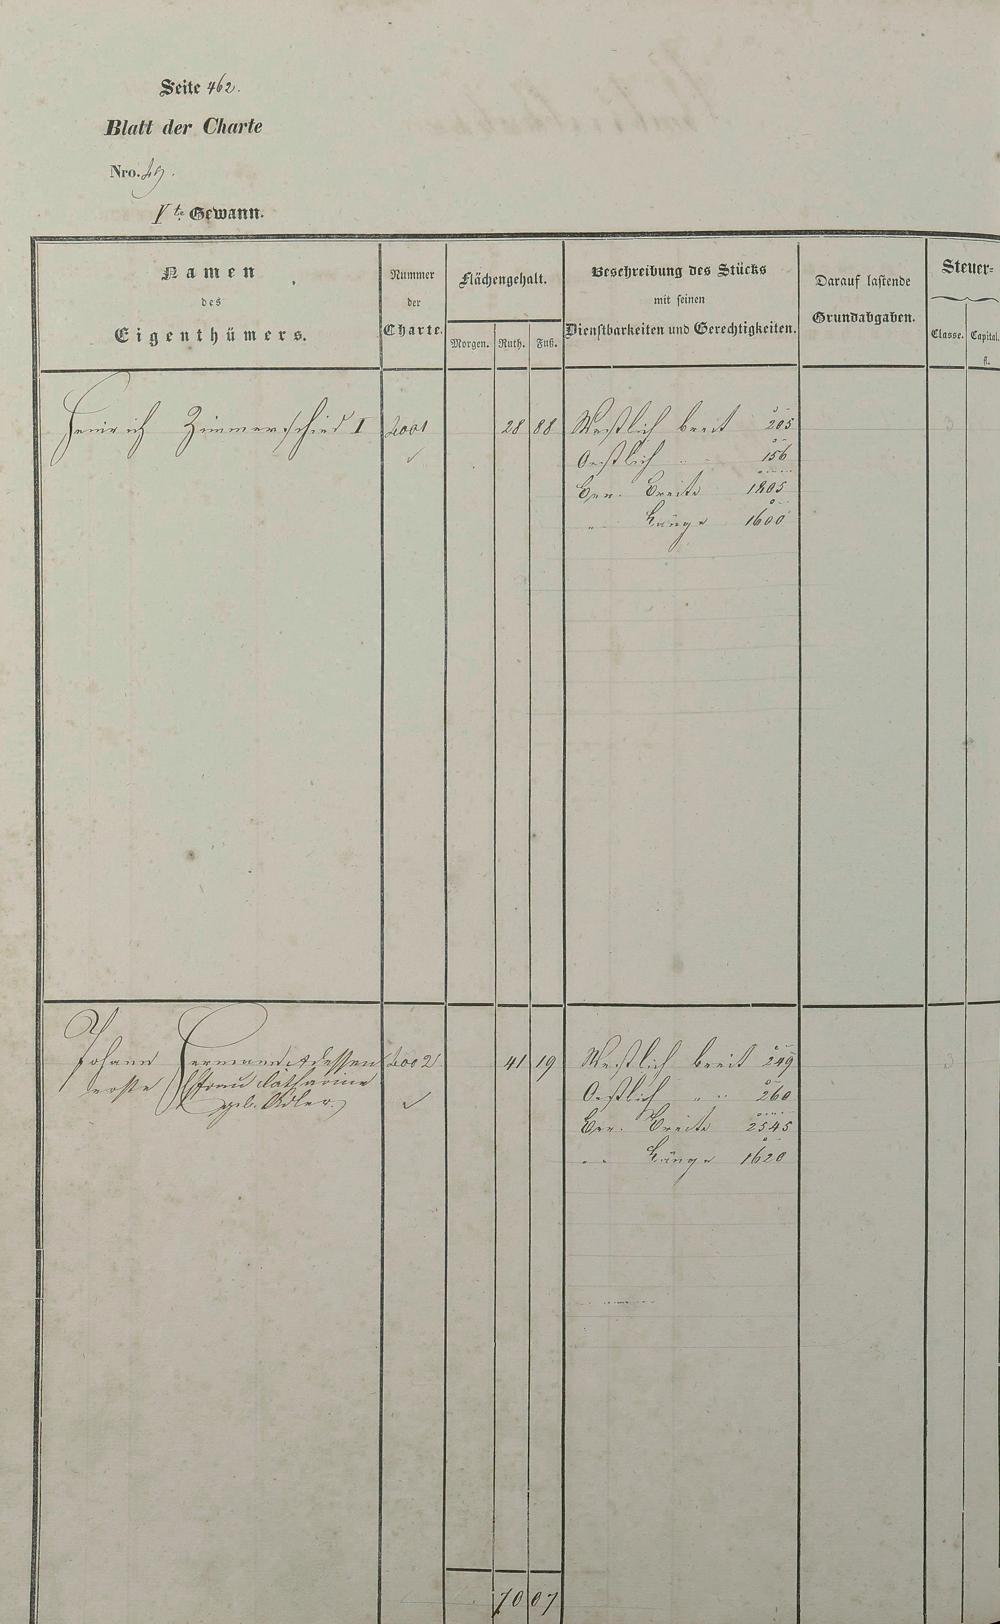 Seite 462.
Blatt der Charte
Nro. 49.
Vte Gewann.
Namen
des
Eigenthümers.
Nummer
der
Charte.
Flächengehalt.
Morgen. Ruth. Fuß.
Beschreibung des Stücks
mit seinen
Dienstbarkeiten und Gerechtigkeiten.
Darauf lastende
Grundabgaben.
Steuer-
Classe. Capital.
fl.
Heinrich Zimmerschied I 2001 28 88 Westlich breit 205 3
Oestlich " " 156
Ber. Breite 1805
" Länge 1600
Johann Hermann dessen 2002 41 19 Westlich breit 249 3
erste Frau Catharine Oestlich " " 260
geb. Adler. Ber. Breite 2545
" " Länge 1620
70 07